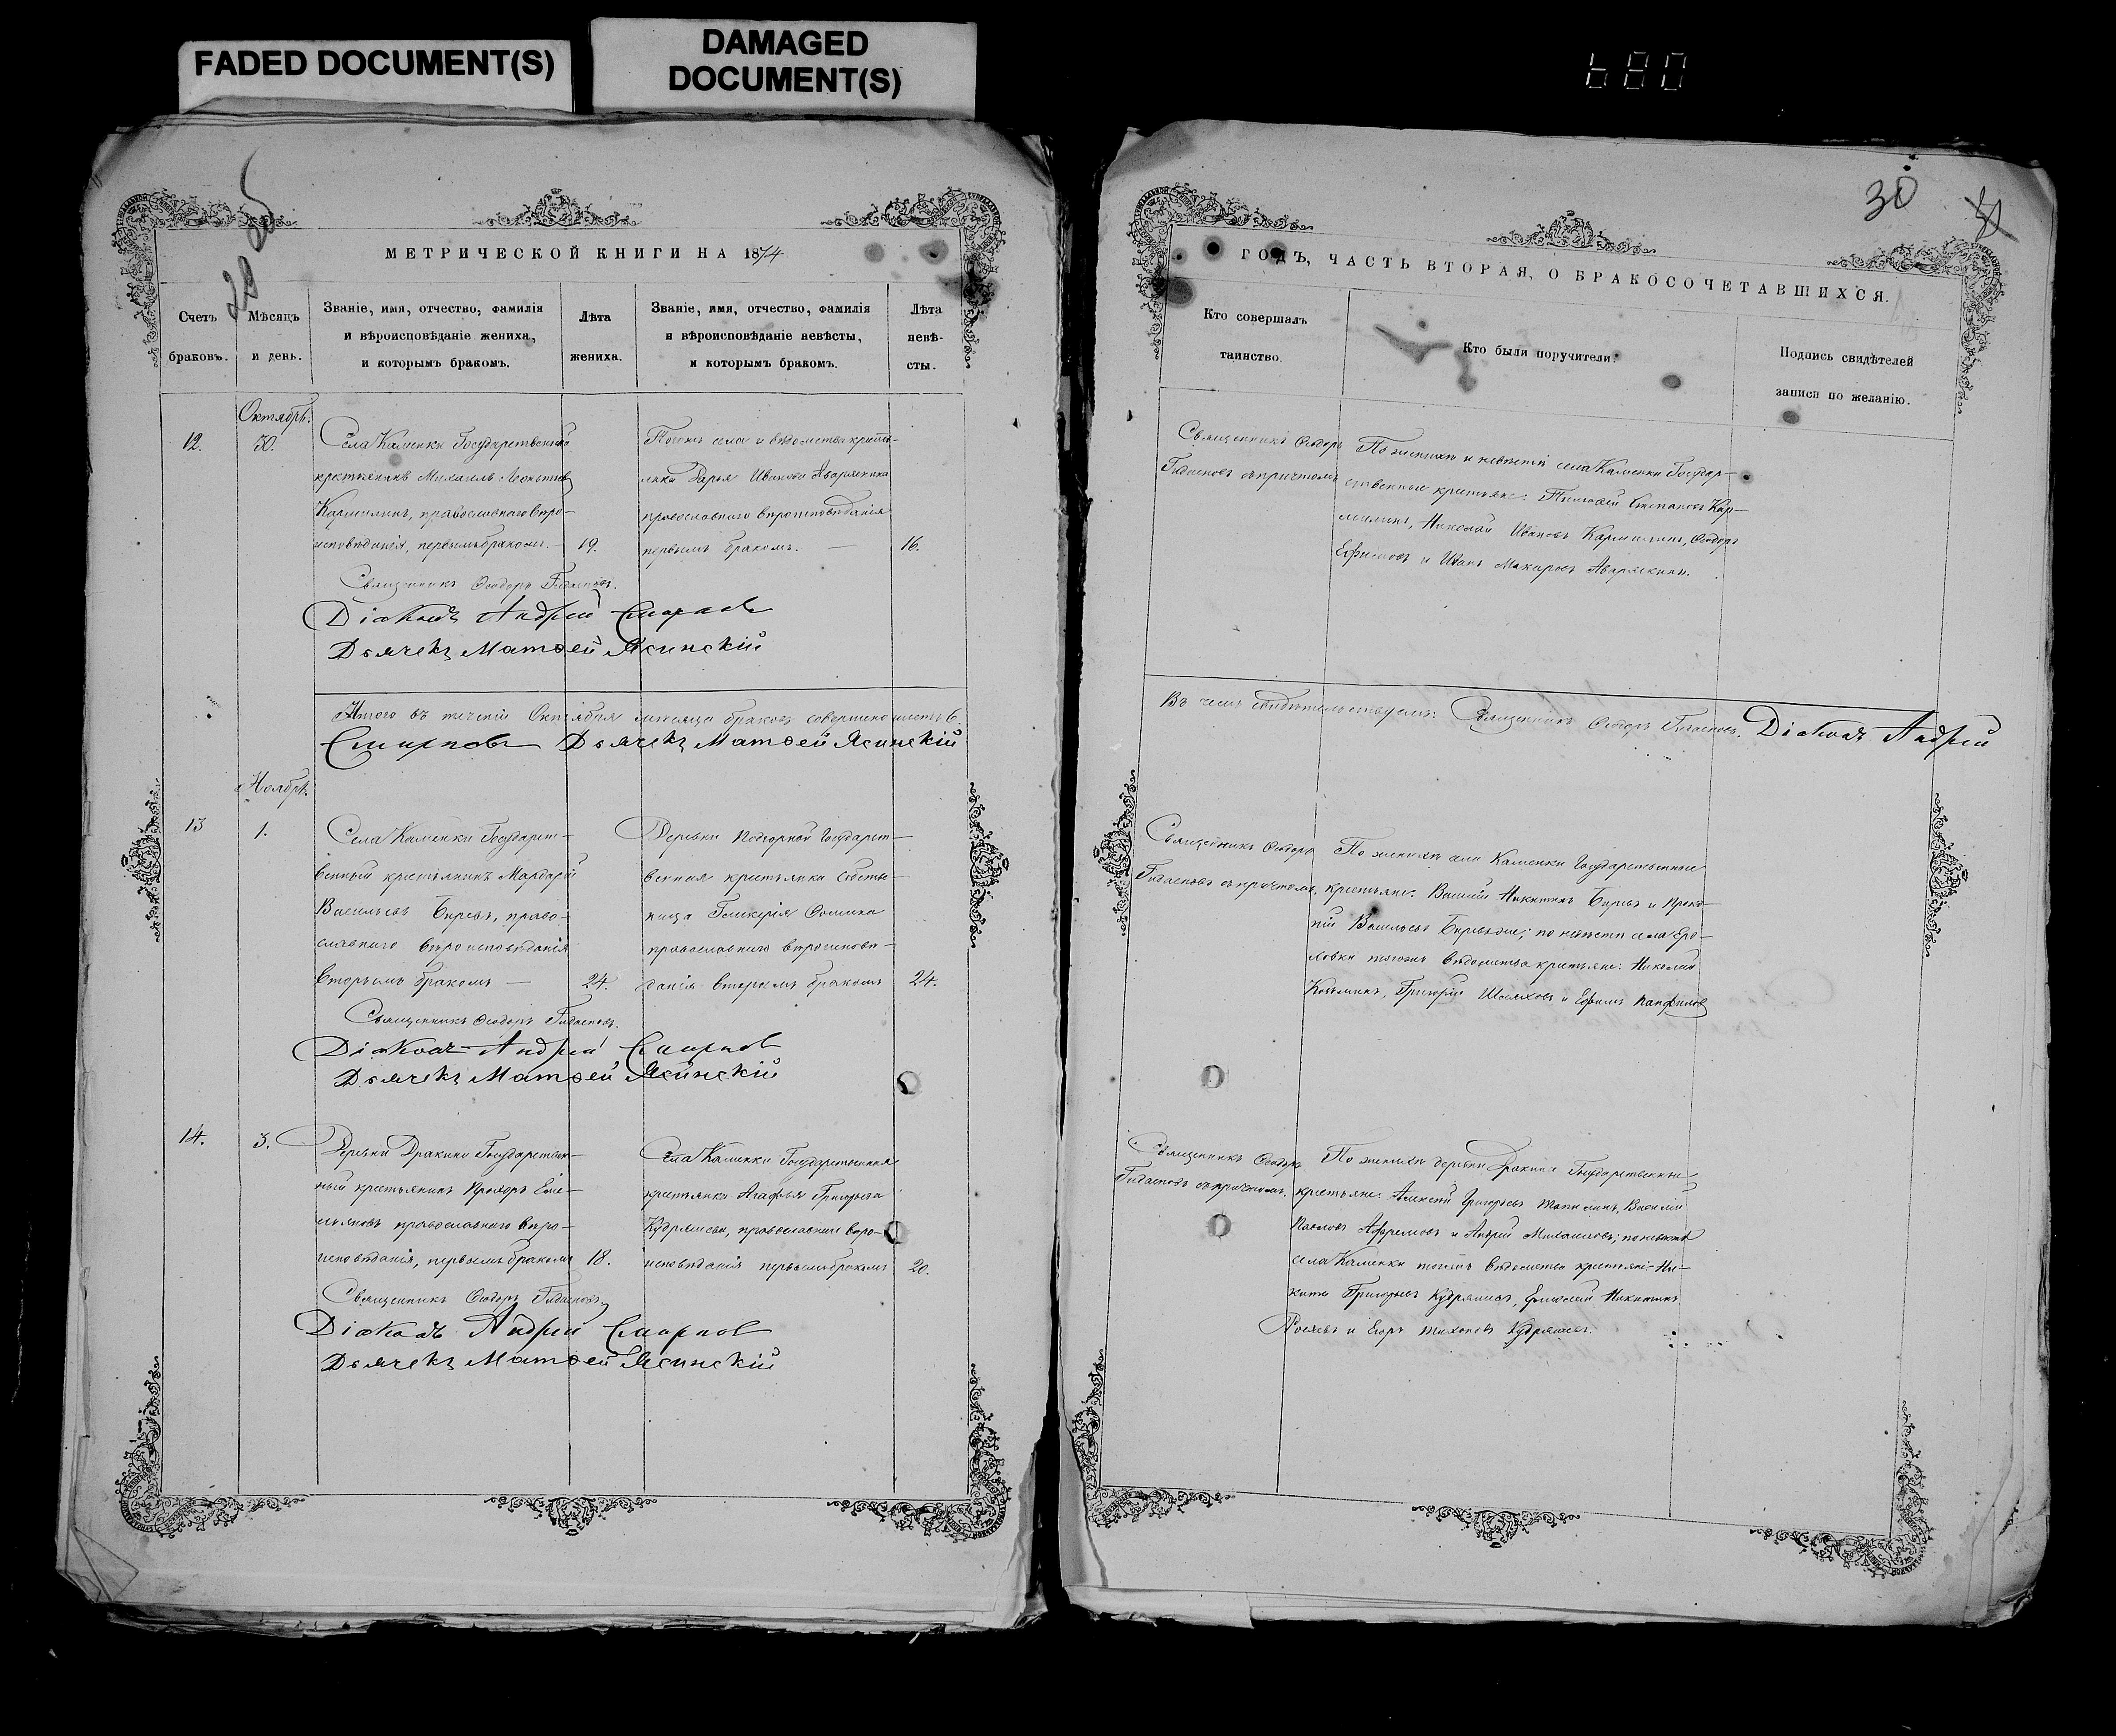 FADED DOCUMENT(S)
DAMAGED
DOCUMENT(S)
680
30
МЕТРИЧЕСКОЙ КНИГИ НА 1874
Счетъ
браковъ.
Мѣсяцъ
и день.
Званіе, имя, отчество, фамилія
и вѣроисповѣданіе жениха,
и которымъ бракомъ.
Лѣта
жениха.
Званіе, имя, отчество, фамилія
и вѣроисповѣданіе невѣсты,
и которымъ бракомъ.
Лѣта
невѣ-
сты.
Октябрь.
12.
30.
Села Каменки Государственный
крестьянинъ Михаилъ Леонтьевъ
Кармилинъ, православнаго вѣро-
исповѣданія, первымъ бракомъ.
19.
Тогожъ села и вѣдомства кресть-
янка Дарья Иванова Аваряскина
православнаго вѣроисповѣданія
первымъ бракомъ. —
16.
Священникъ Ѳеодоръ Гидасповъ.
Діаконъ Андрей Смирновъ
Дьячекъ Матѳей Ясинскій
Итого въ теченіи Октября мѣсяца браковъ совершено шесть 6.
Смирновъ Дьячекъ Матѳей Ясинскій
Ноябрь.
13
1.
Села Каменки Государст-
венный крестьянинъ Мардарій
Васильевъ православнаго вѣроисповѣданія
вторымъ бракомъ —
24.
Деревни Подгорной Государст-
венная крестьянка
Гликерія Ѳомина
православнаго вѣроисповѣ-
данія вторымъ бракомъ
24.
Священникъ Ѳеодоръ Гидасповъ.
Діаконъ Андрей Смирновъ
Дьячекъ Матѳей Ясинскій
14.
3.
Деревни Дракина Государствен-
ный крестьянинъ Прохоръ Еме-
льяновъ православнаго вѣро-
исповѣданія, первымъ бракомъ
18.
Села Каменки Государственная
крестьянка Агафья Григорьева
Кудряшева, православнаго вѣро-
исповѣданія первымъ бракомъ
20.
Священникъ Ѳеодоръ Гидасповъ
Діаконъ Андрей Смирновъ
Дьячекъ Матѳей Ясинскій
ГОДЪ, ЧАСТЬ ВТОРАЯ, О БРАКОСОЧЕТАВШИХСЯ.
Кто совершалъ
таинство.
Кто были поручители.
Подпись свидѣтелей
записи по желанію.
Священникъ Ѳеодоръ
Гидасповъ съ причтомъ
По женихѣ и невѣстѣ села Каменки Государ-
ственные крестьяне: Тимоѳей Степановъ Кар-
милинъ, Николай Ивановъ Кармилинъ, Ѳеодоръ
Ефимовъ и Иванъ Макаровъ Аваряскинъ.
Въ чемъ свидѣтельствуемъ: Священникъ Ѳеодоръ Гидасповъ. Діаконъ Андрей
Священникъ Ѳеодоръ
Гидасповъ съ причтомъ.
По женихѣ села Каменки Государственные
крестьяне: Василій Никитинъ и Проко-
пій Васильевъ по невѣстѣ села
тогожъ вѣдомства крестьяне: Николай
Козьминъ, Григорій и Ефимъ Панфиловъ
Священникъ Ѳеодоръ
Гидасповъ съ причтомъ.
По женихѣ деревни Дракина Государственные
крестьяне: Алексѣй Григорьевъ Василій
Павловъ Афремовъ и Андрей Михаиловъ; по невѣстѣ
села Каменки тогожъ вѣдомства крестьяне: Ни-
кита Григорьевъ Кудряшевъ, Никитинъ
и Егоръ Тихоновъ Кудряшевъ.